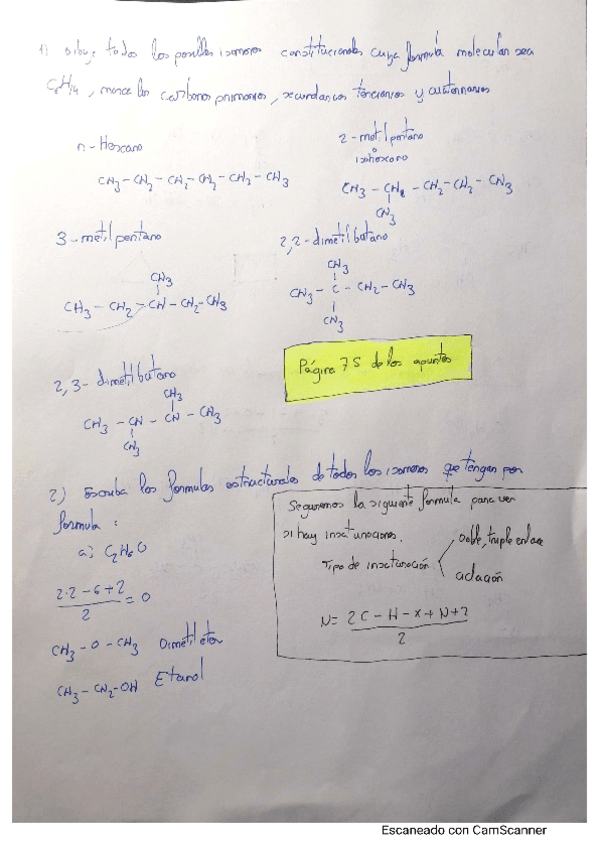 1) Dibuje todos los posibles isomeros constitucionales cuya formula molecular sea
C6H14, marca los carbonos primarios, secundarios terciarios y cuaternarios
n-Hexano
CH3-CH2-CH2-CH2-CH2-CH3
2-metilpentano
o
isohexano
CH3-CH2-CH2-CH2-CH3
CH3
3-metilpentano
CH3
CH3-CH2-CH-CH2-CH3
2,2-dimetilbutano
CH3
CH3-C-CH2-CH3
CH3
Página 75 de los apuntes
2,3-dimetilbutano
CH3
CH3-CH-CH-CH3
CH3
2) Escriba las formulas estructurales de todos los isomeros que tengan por
formula:
a) C2H6O
2·2-6+2
2
=0
CH3-O-CH3 Dimetileter
CH3-CH2-OH Etanol
Seguiremos la siguiente formula para ver
si hay insaturaciones.
Tipo de insaturación
Doble, triple enlace
ciclación
N= 2C-H-X+N+2
2
Escaneado con CamScanner